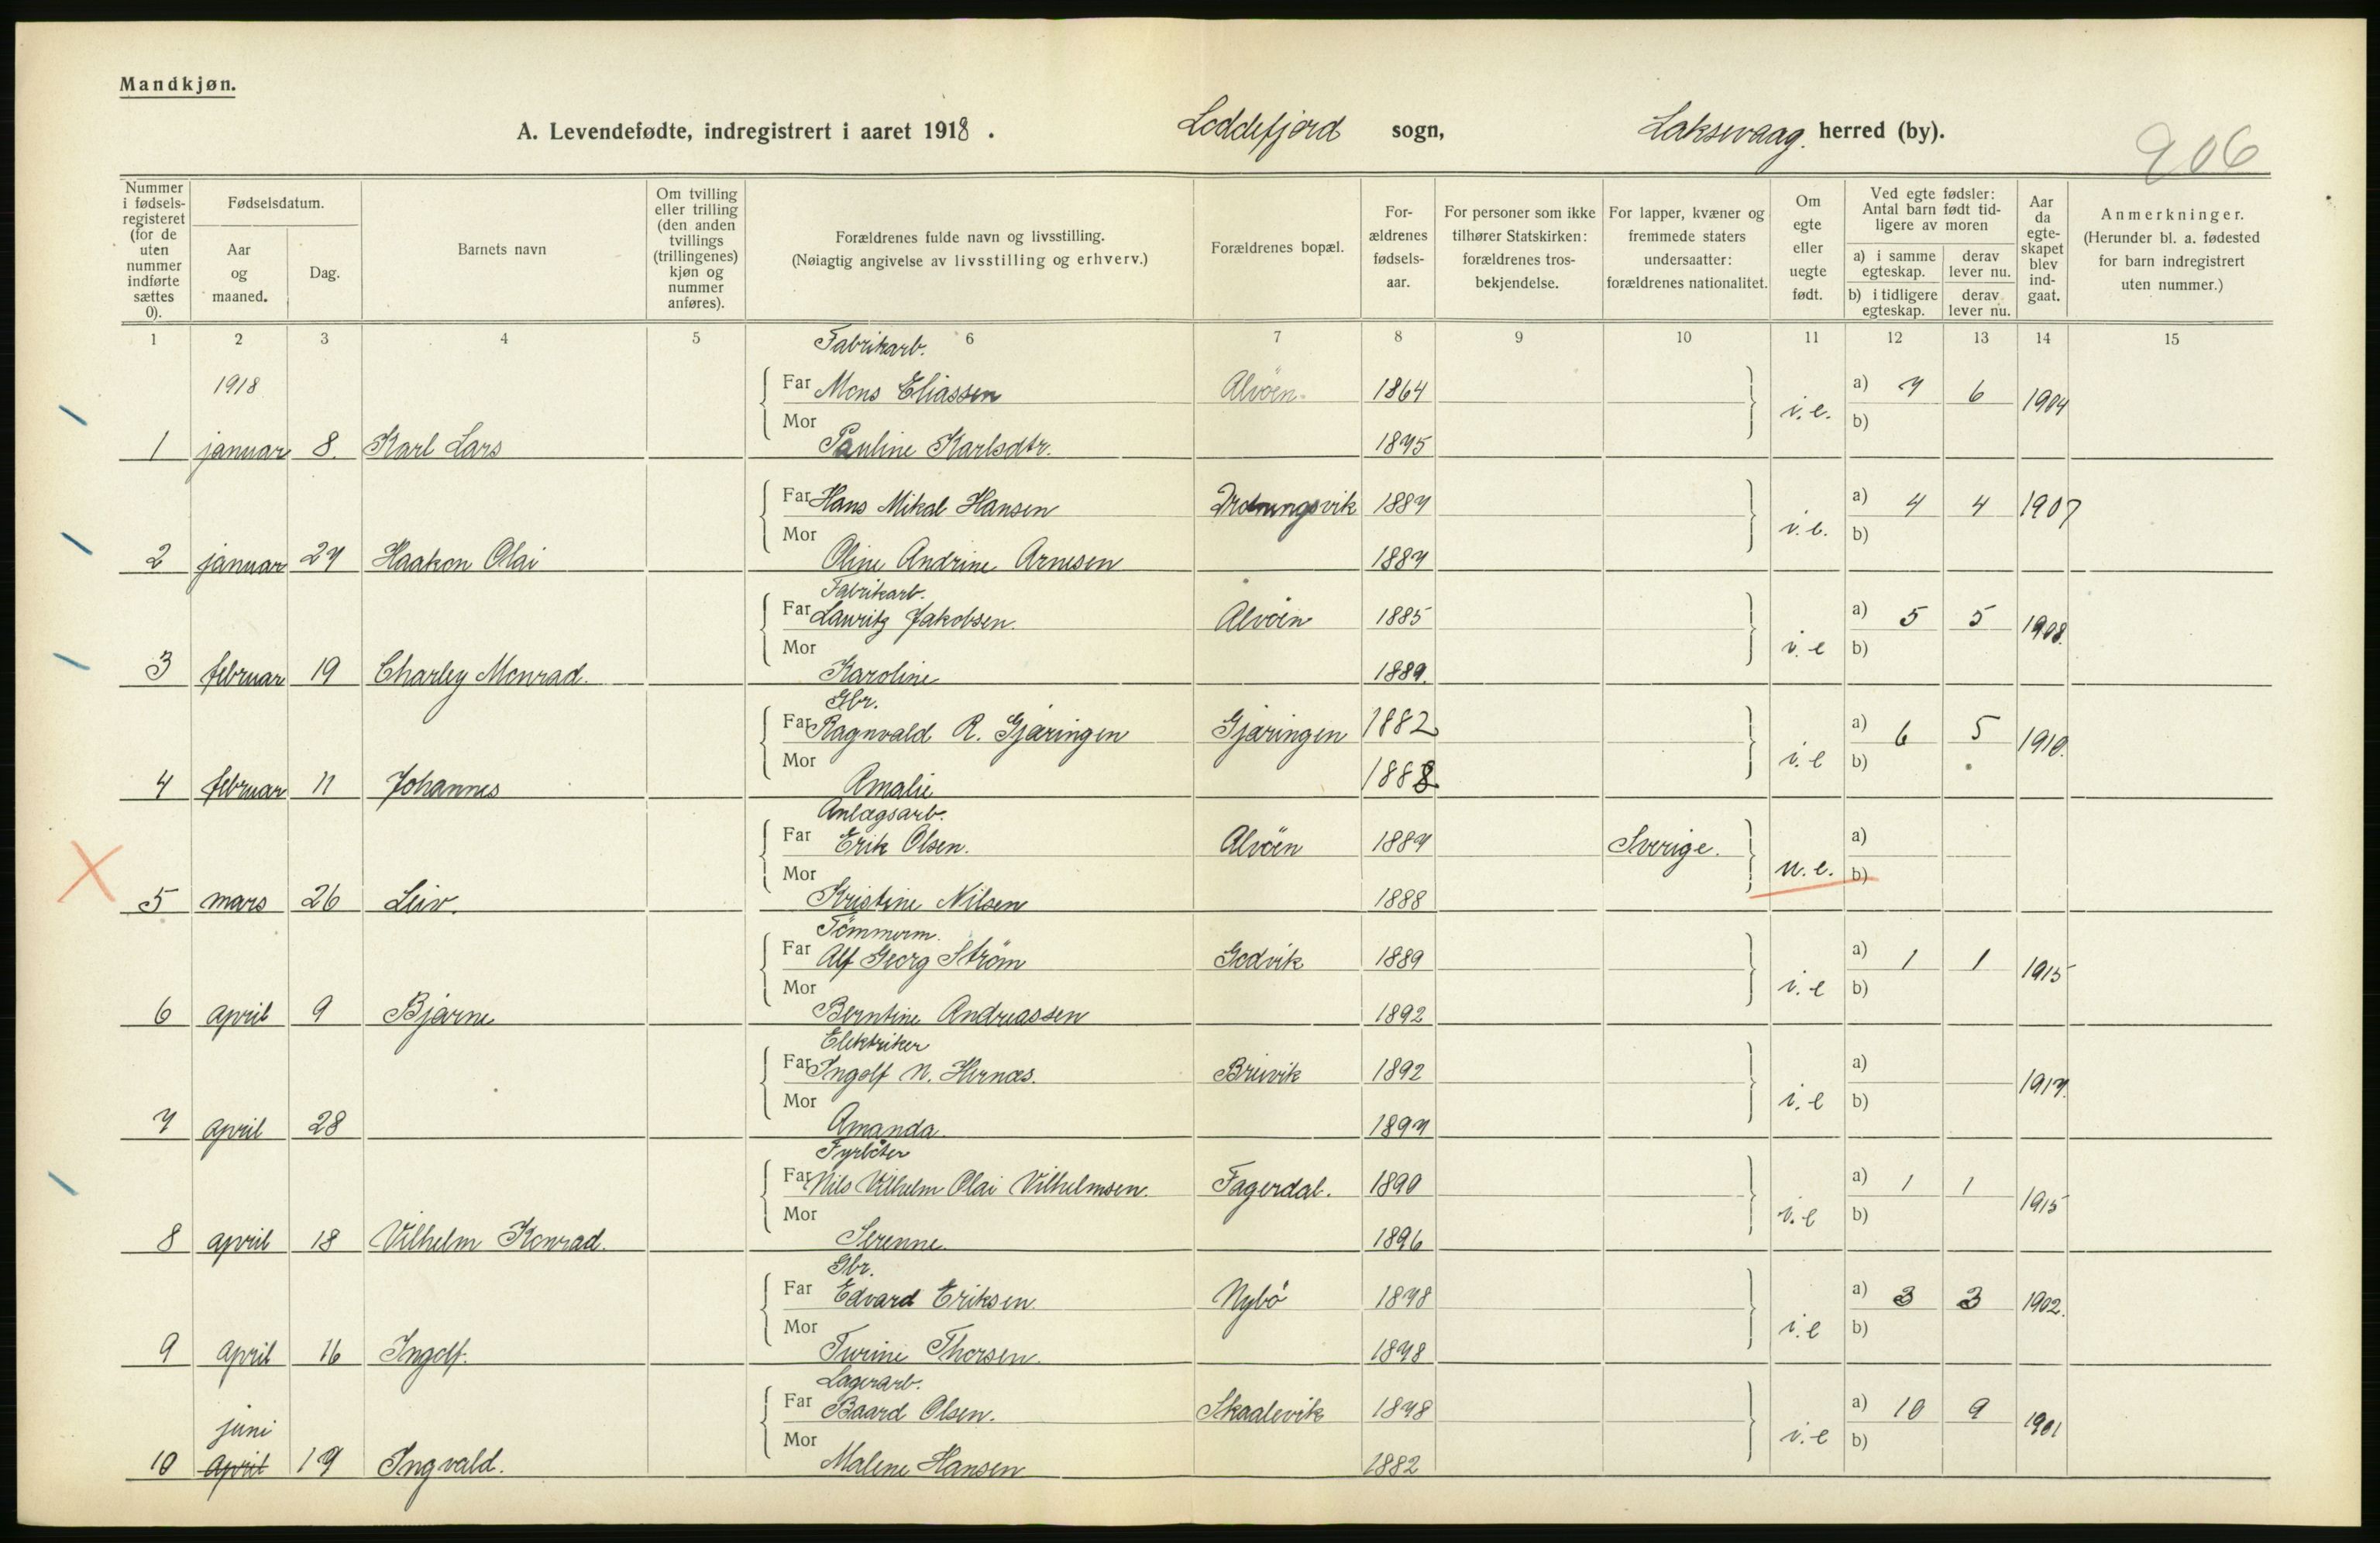 Mandkjøn.
A. Levendefødte, indregistrert i aaret 1918. Loddefjord sogn, Laksevaag. herred (by).
906
Nummer i fødselsregisteret (for de uten nummer indførte sættes 0).
Fødselsdatum.
Aar og maaned.
Dag.
Barnets navn
Om tvilling eller trilling (den anden tvillings (trillingenes) kjøn og nummer anføres).
Forældrenes fulde navn og livsstilling.
(Nøiagtig angivelse av livsstilling og erhverv.)
Forældrenes bopæl.
Forældrenes fødselsaar.
For personer som ikke tilhører Statskirken: forældrenes trosbekjendelse.
For lapper, kvæner og fremmede staters undersaatter: forældrenes nationalitet.
Om egte eller uegte født.
Ved egte fødsler: Antal barn født tidligere av moren
a) i samme egteskap.
derav lever nu.
b) i tidligere egteskap.
derav lever nu.
Aar da egteskapet blev indgaat.
Anmerkninger.
(Herunder bl. a. fødested for barn indregistrert uten nummer.)
1 2 3 4 5 6 7 8 9 10 11 12 13 14 15
Fabrikarb.
1918 Far Mons Eliassen Alvøen. 1864 i.e. a) 7 6 1904
Mor b)
1 januar 8. Karl Lars Pauline Karlsdtr. 1875
Far Hans Mikal Hansen Drotningsvik 1887 i.e. a) 4 4 1907
Mor b)
2 januar 27 Haakon Olai Oline Andrine Arnesen 1887
Fabrikarb.
Far Lauritz Jakobsen. Alvøen 1885 i.e a) 5 5 1908.
Mor b)
3 februar 19 Charley Monrad. Karoline 1889.
Gbr.
Far Ragnvald R. Gjæringen Gjæringen 1882 i.e a) 6 5 1910.
Mor b)
4 februar 11 Johannes Amalie 1888
Anlægsarb.
Far Erik Olsen. Alvöen 1887 Sverige. u.e. a)
Mor b)
5 mars 26 Leiv. Kristine Nilsen 1888
Tömmerm.
Far Alf Georg Ström Godvik 1889 i.e a) 1 1 1915
Mor b)
6 april 9 Bjarne Berntine Andreassen 1892
Elektriker
Far Ingolf N. Hernæs. Breivik 1892 i.e a) 1917.
Mor b)
7 april 28 Amanda. 1897
Fyrböter
Far Nils Vilhelm Olai Vilhelmsen. Fagerdal. 1890 i.e a) 1 1 1915
Mor b)
8 april 18 Vilhelm Konrad. Serenne. 1896
Gbr.
Far Edvard Eriksen. Nybö 1878 i.e a) 3 3 1902.
Mor b)
9 april 16 Ingolf. Turine Thorsen. 1878
Lagerarb.
Far Baard Olsen. Skaalevik 1878 i.e a) 10 9 1901
juni Mor b)
10 april 19 Ingvald. Malene Hansen 1882